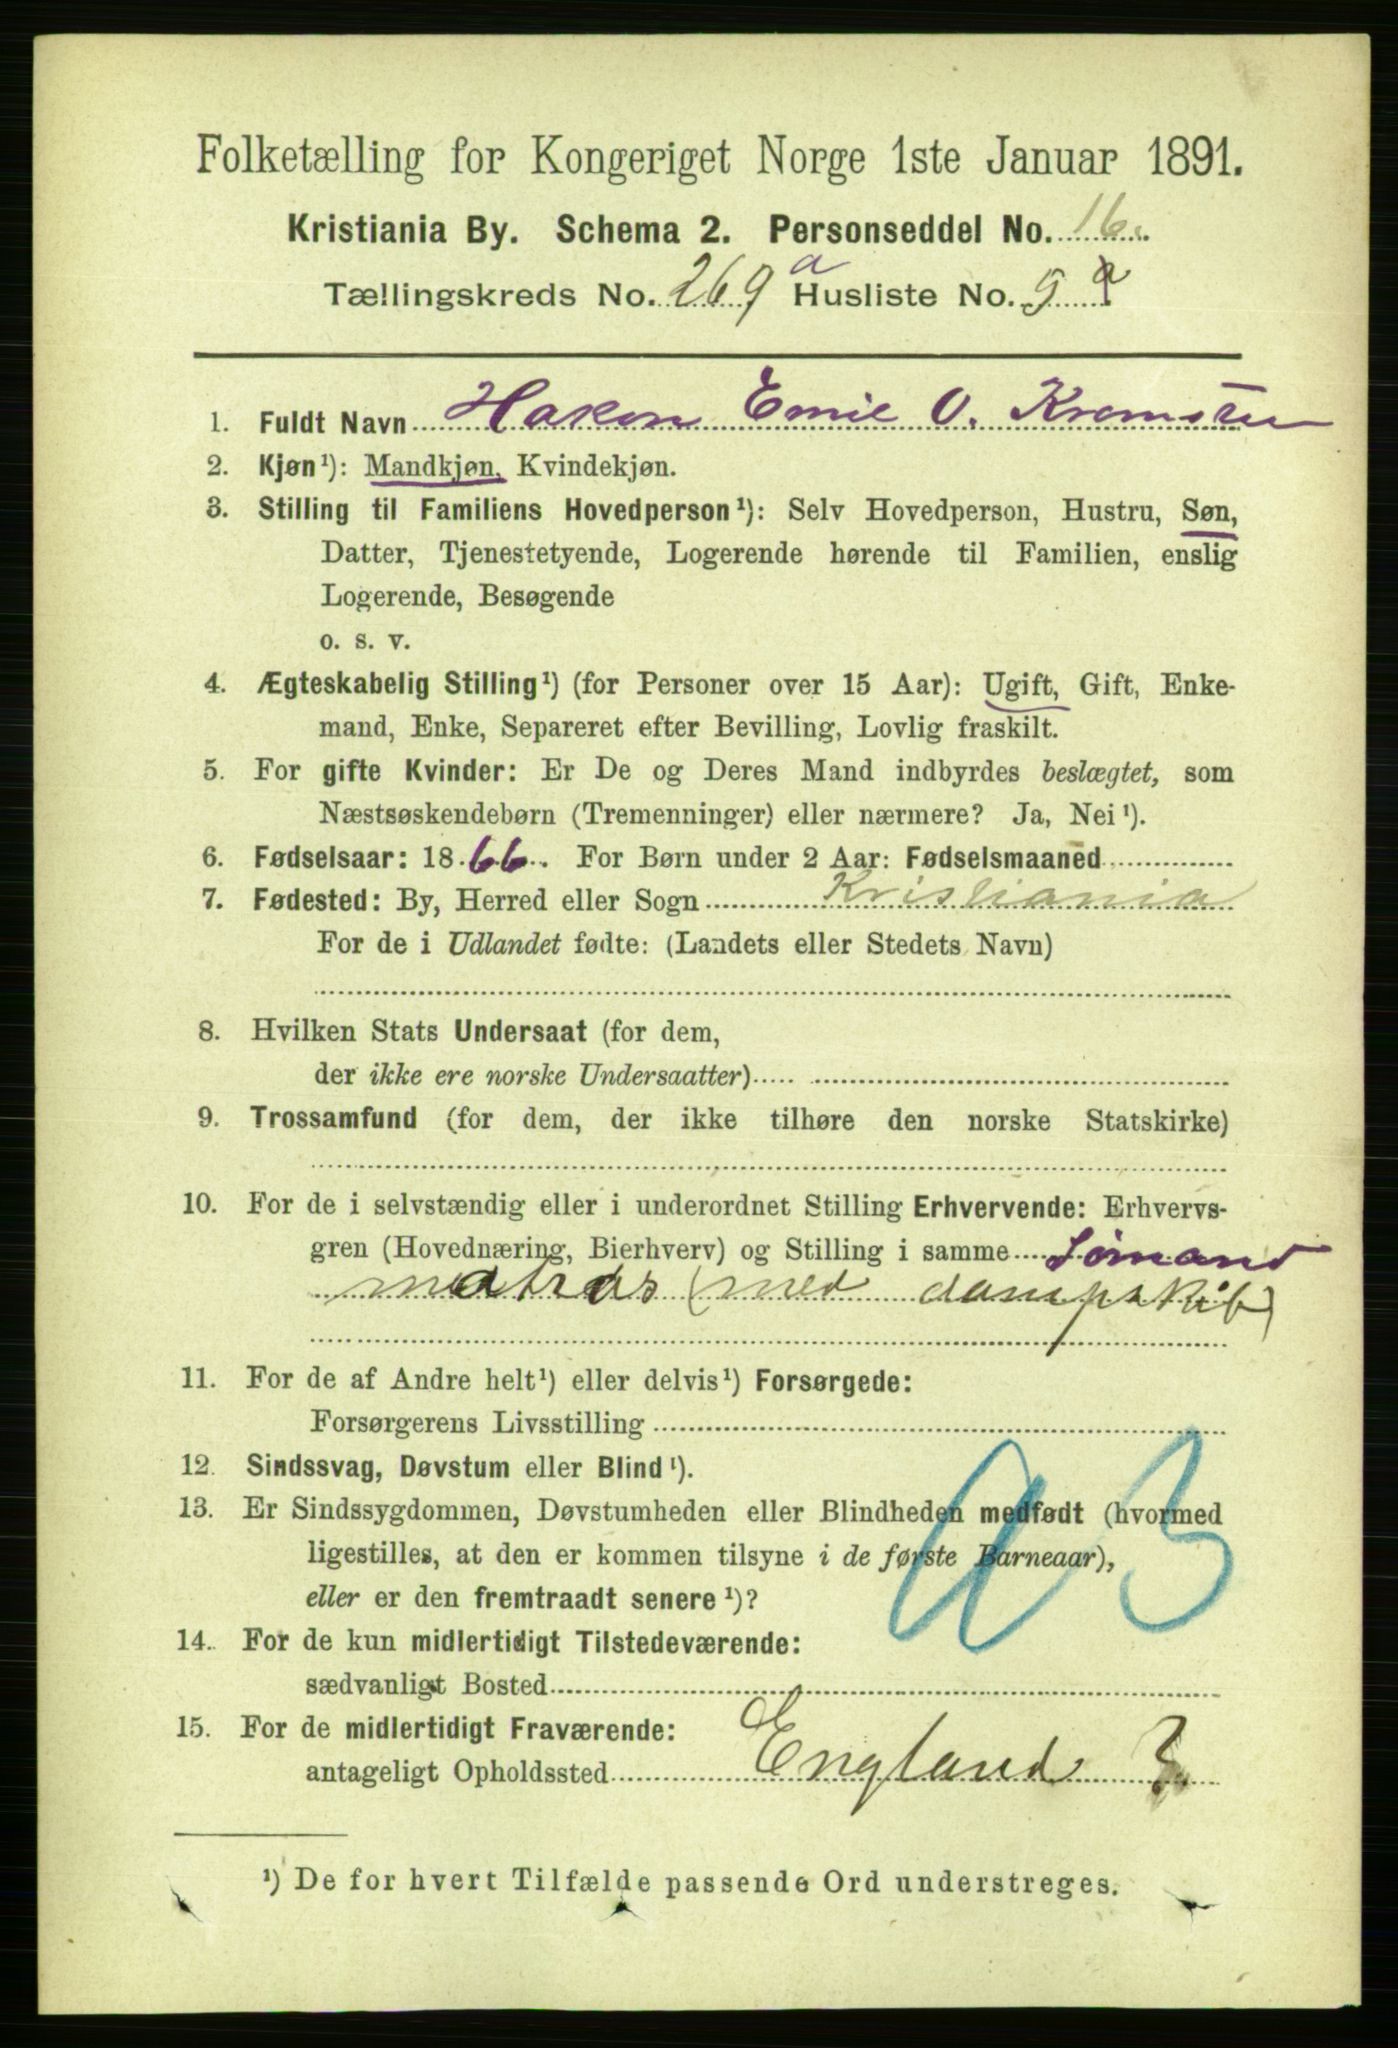 Folketælling for Kongeriget Norge 1ste Januar 1891.
Kristiania By. Schema 2. Personseddel No. 16.
Tællingskreds No. 269 a Husliste No. 5 a
1. Fuldt Navn Hakon Emil O. Kromsten
2. Kjøn¹): Mandkjøn, Kvindekjøn.
3. Stilling til Familiens Hovedperson¹): Selv Hovedperson, Hustru, Søn,
Datter, Tjenestetyende, Logerende hørende til Familien, enslig
Logerende, Besøgende
o. s. v.
4. Ægteskabelig Stilling¹) (for Personer over 15 Aar): Ugift, Gift, Enke-
mand, Enke, Separeret efter Bevilling, Lovlig fraskilt.
5. For gifte Kvinder: Er De og Deres Mand indbyrdes beslægtet, som
Næstsøskendebørn (Tremenninger) eller nærmere? Ja, Nei¹).
6. Fødselsaar: 1866. For Børn under 2 Aar: Fødselsmaaned
7. Fødested: By, Herred eller Sogn Kristiania
For de i Udlandet fødte: (Landets eller Stedets Navn)
8. Hvilken Stats Undersaat (for dem,
der ikke ere norske Undersaatter)
9. Trossamfund (for dem, der ikke tilhøre den norske Statskirke)
10. For de i selvstændig eller i underordnet Stilling Erhvervende: Erhvervs-
gren (Hovednæring, Bierhverv) og Stilling i samme Sømand
matros (med dampskib)
11. For de af Andre helt¹) eller delvis¹) Forsørgede:
Forsørgerens Livsstilling
12. Sindssvag, Døvstum eller Blind¹).
13. Er Sindssygdommen, Døvstumheden eller Blindheden medfødt (hvormed
ligestilles, at den er kommen tilsyne i de første Barneaar),
eller er den fremtraadt senere¹)?
14. For de kun midlertidigt Tilstedeværende:
sædvanligt Bosted
15. For de midlertidigt Fraværende:
antageligt Opholdssted England 3
¹) De for hvert Tilfælde passende Ord understreges.